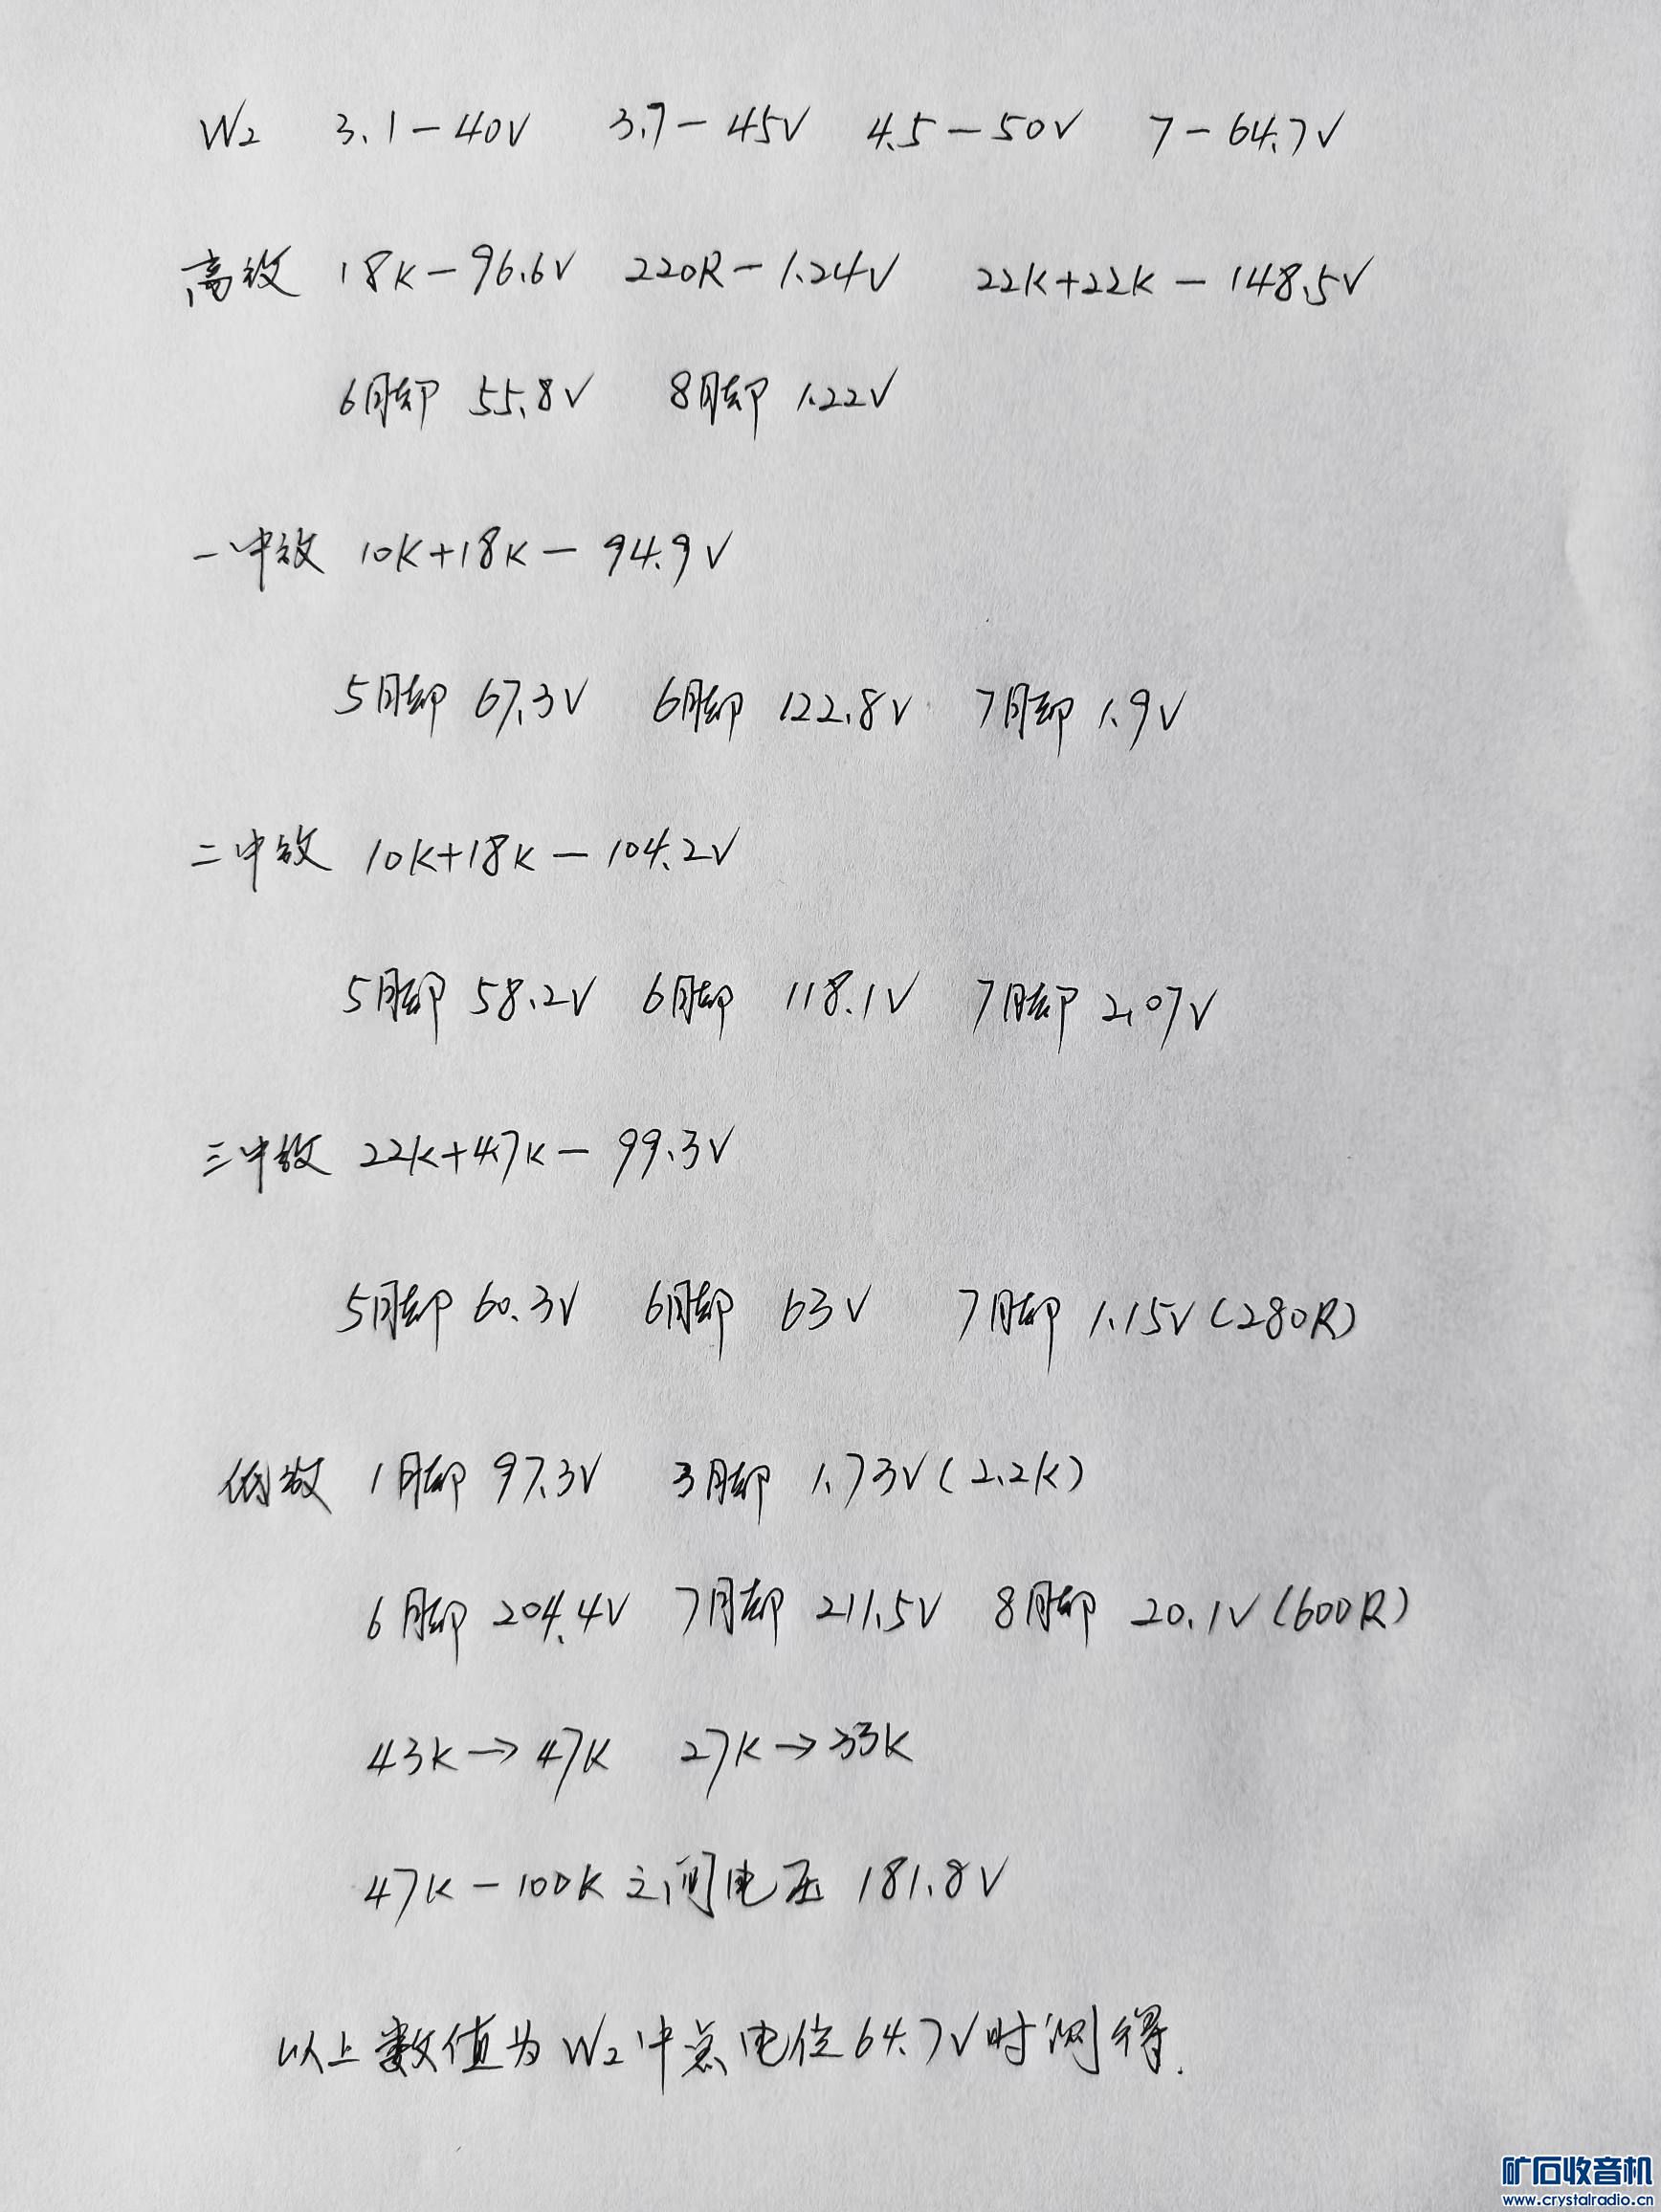 W2 3.1-40V 3.7-45V 4.5-50V 7-64.7V
高放 18K-96.6V 220R-1.24V 22K+22K-148.5V
6脚 55.8V 8脚 1.22V
一中放 10K+18K-94.9V
5脚 67.3V 6脚 122.8V 7脚 1.9V
二中放 10K+18K-104.2V
5脚 58.2V 6脚 118.1V 7脚 2.07V
三中放 22K+4.7K-99.3V
5脚 60.3V 6脚 63V 7脚 1.15V(280R)
低放 1脚 97.3V 3脚 1.73V(2.2K)
6脚 204.4V 7脚 211.5V 8脚 20.1V(600R)
43K→47K 27K→33K
47K-100K之间电压 181.8V
以上数值为W2中点电位64.7V时测得.
矿石收音机
www.crystalradio.cn